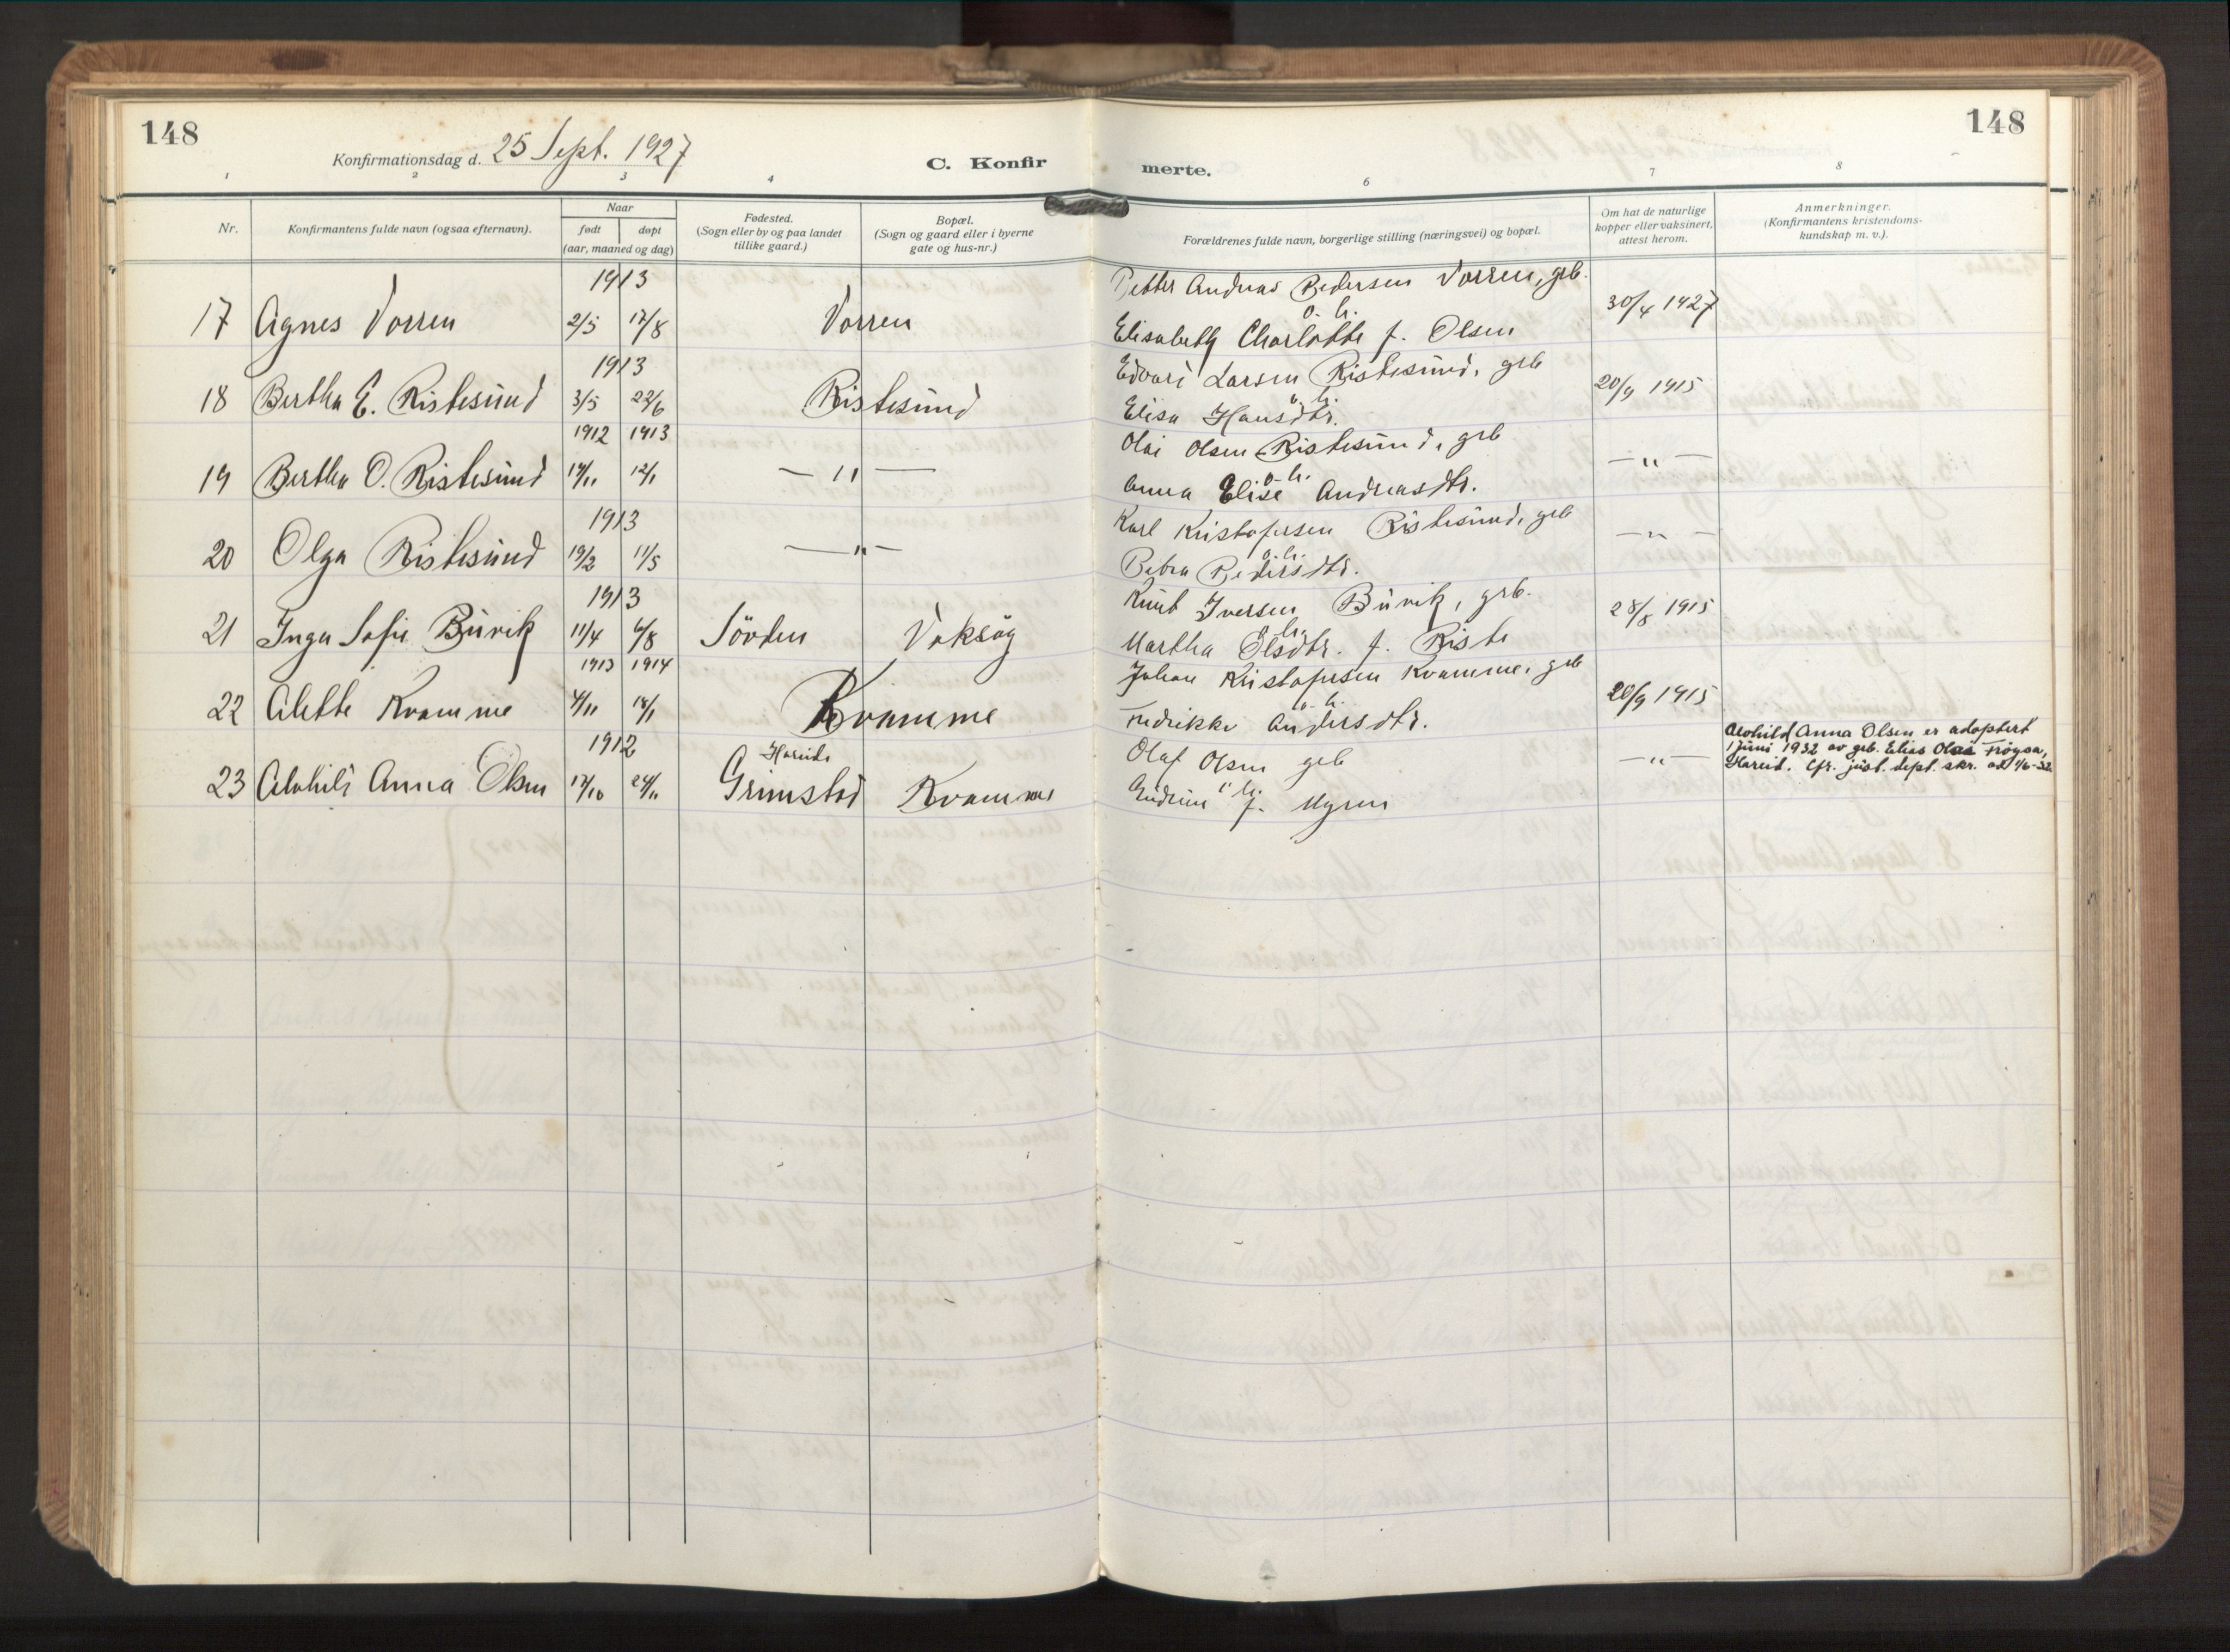 148
148
Konfirmationsdag d. 25 Sept. 1927
C. Konfirmerte.
1 2 3 4 6 7 8
Nr.
Konfirmantens fulde navn (ogsaa efternavn).
Naar
født
døpt
(aar, maaned og dag)
Fødested.
(Sogn eller by og paa landet
tillike gaard.)
Bopæl.
(Sogn og gaard eller i byerne
gate og hus-nr.)
Forældrenes fulde navn, borgerlige stilling (næringsvei) og bopæl.
Om hat de naturlige
kopper eller vaksinert,
attest herom.
Anmerkninger.
(Konfirmantens kristendoms-
kundskap m. v.).
1913 Petter Andreas Pedersen Vorren, grb.
17 Agnes Vorren 2/5 17/8 Vorren o. h. 30/4 1927
Elisabeth Charlotte f. Olsen
1913 Edvard Larsen Ristesund, grb
18 Bertha E. Ristesund 3/5 22/6 Ristesund o. h. 20/9 1915
Elisa Hansdtr.
1912 1913 Olai Olsen Ristesund, grb
19 Bertha O. Ristesund 14/11 12/1 — " — o. h. — " —
Anna Elise Andreasdtr.
1913 Karl Kristofersen Ristesund, grb
20 Olga Ristesund 19/2 11/5 — " — o. h. — " —
Petra Pedersdtr.
1913 Knut Iversen Burik, grb.
21 Inga Sofie Burik 11/4 6/8 Sövden Voksöy o. h. 28/8 1915
Martha Olsdtr. f. Riste
1913 1914 Johan Kristofersen Kvamme, grb
22 Alette Kvamme 4/11 18/1 Kvamme o. h. 20/9 1915
Fredrikke Andersdtr.
1912 Hareide Olaf Olsen grb
23 Alvhild Anna Olsen 17/10 24/11 Grimstad Kvamme o. h. — " —
Endrine f. Myren
Alvhild Anna Olsen er adoptert
1 juni 1932 av grb. Elias Olai Frøysa,
Hareid. Cfr. just. dept. skr. av 1/6-32.